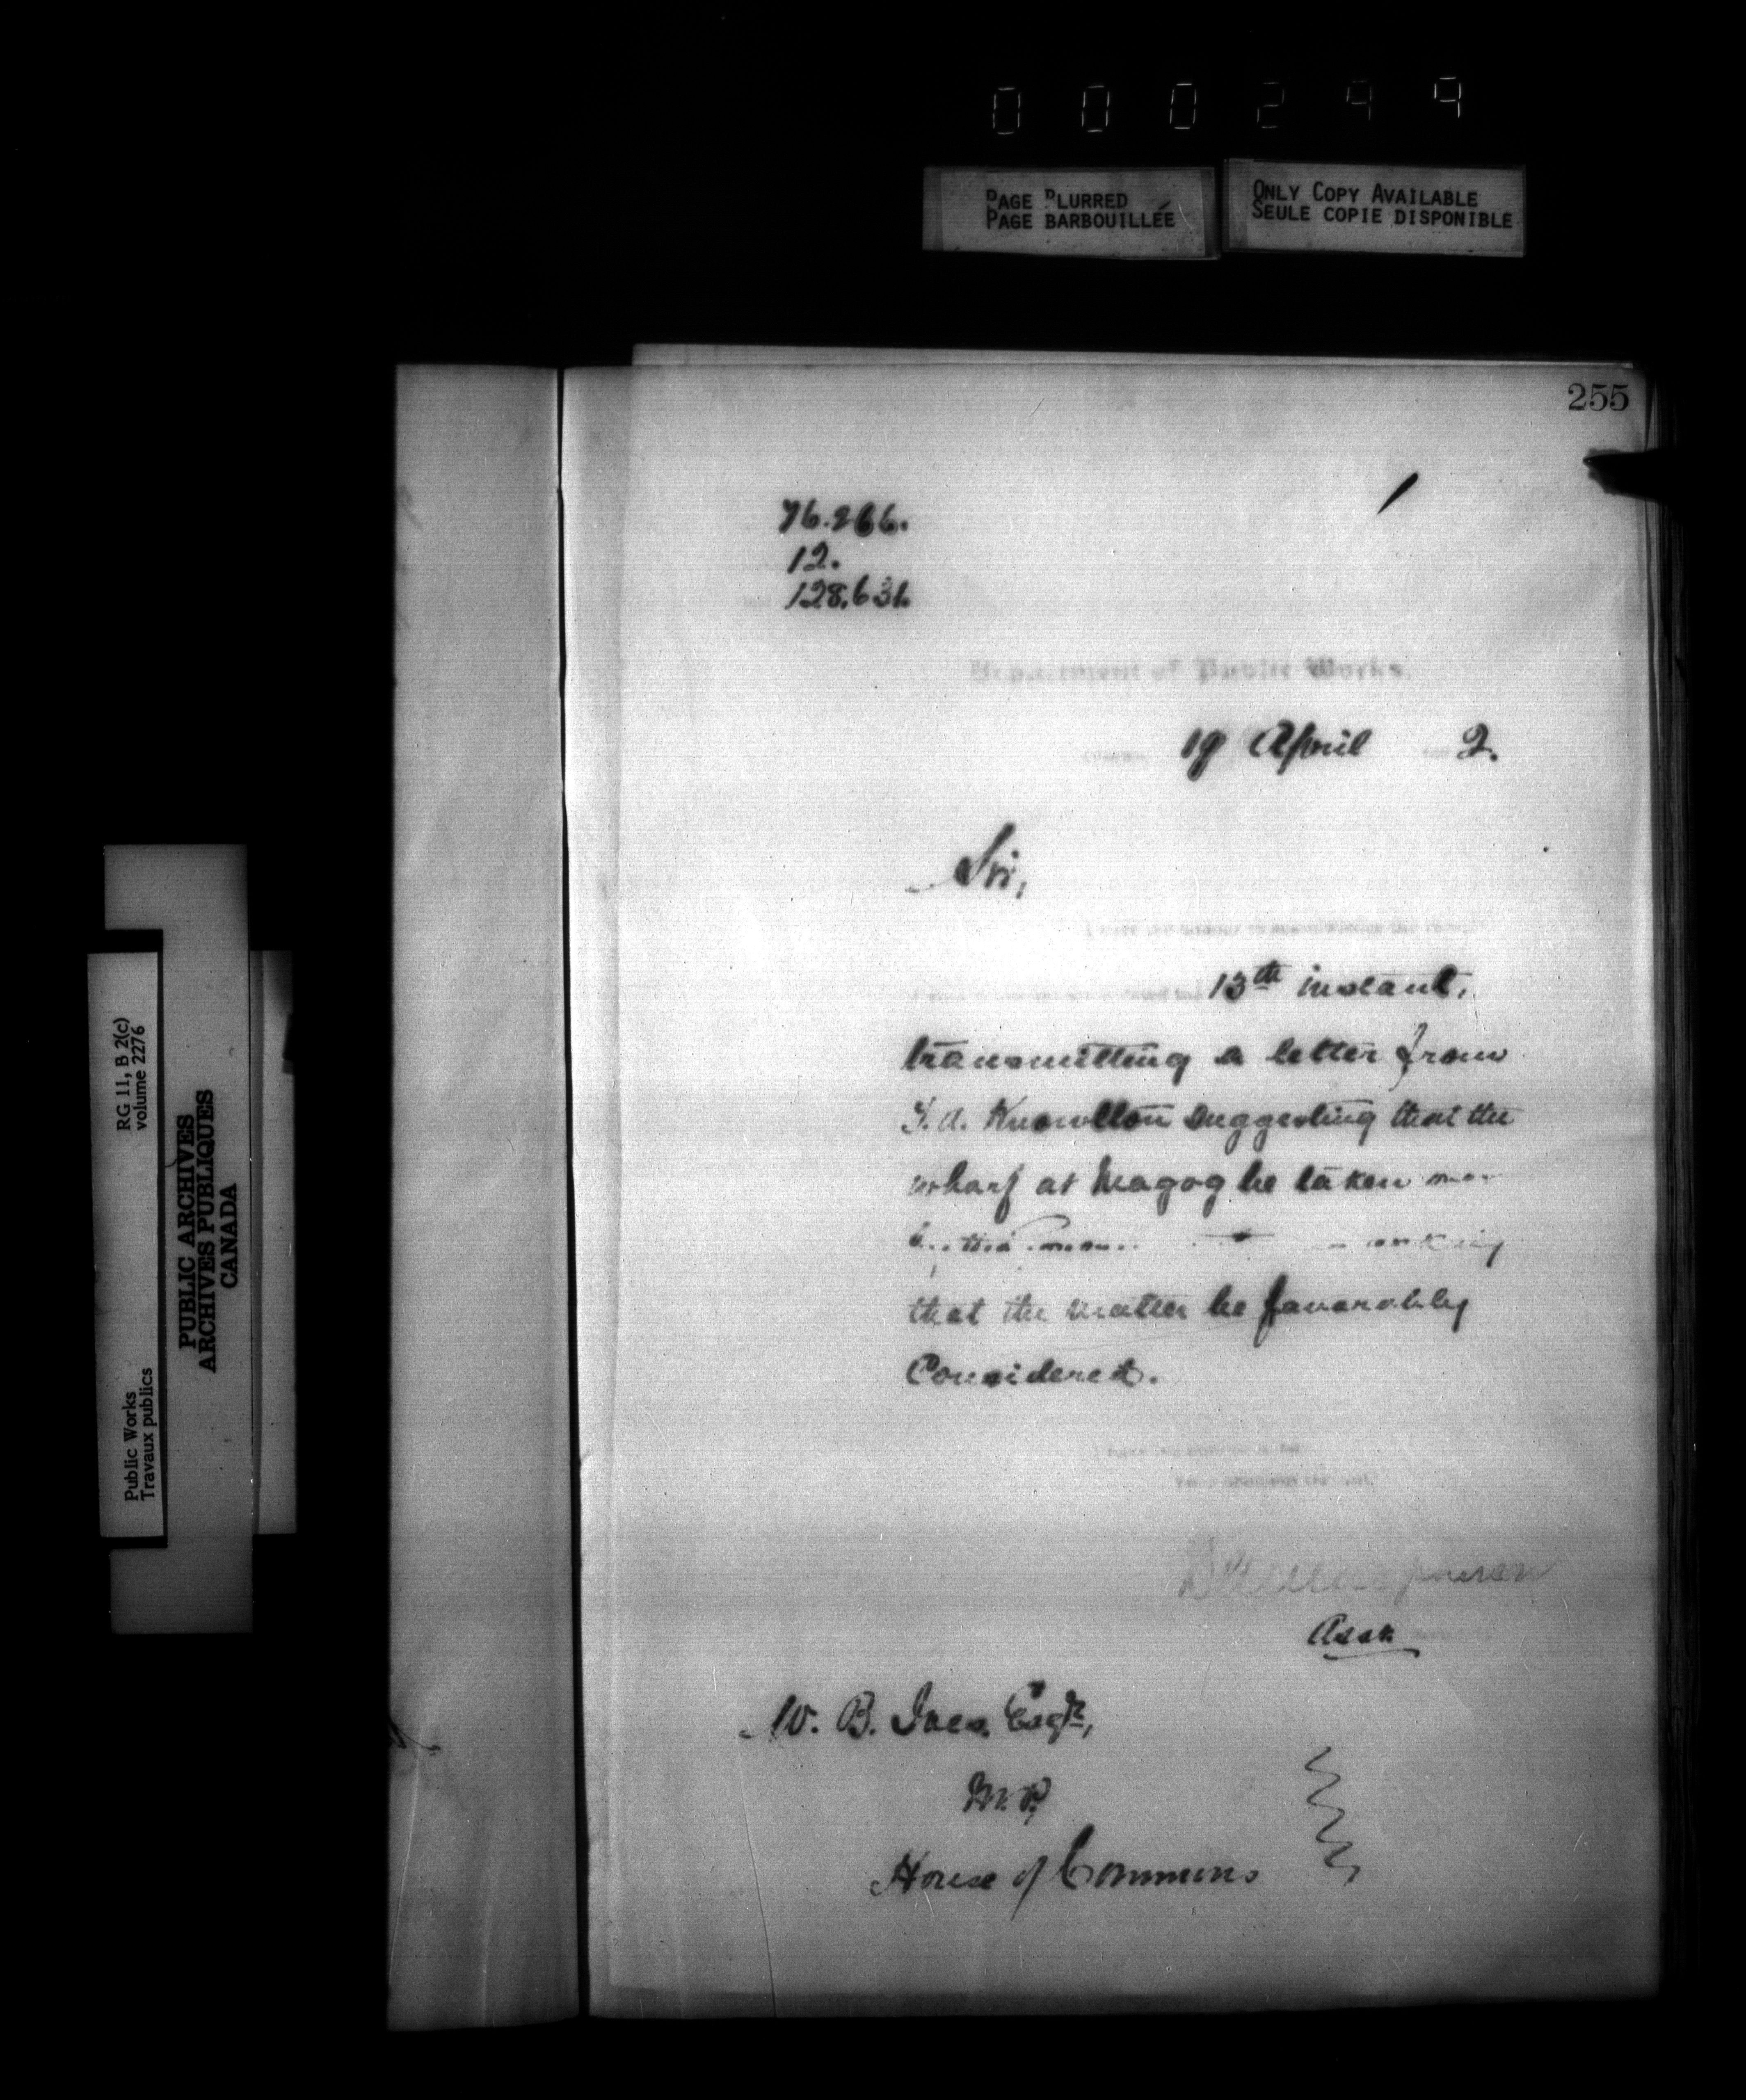 000299
PAGE BLURRED
PAGE BARBOUILLÉE
ONLY COPY AVAILABLE
SEULE COPIE DISPONIBLE
255
76.266.
12.
128,631.
Department of Public Works,
19 April 2.
Sir,
I have the honour to acknowledge the receipt
dated the 13th instant,
transmitting a letter from
Knowlton suggesting that the
wharf at Magog be taken
asking
that the matter be favorably
Considered.
I have the honour to be,
Your obedient servant,
Asst.
W. B. Ives. Esqr,
M.P,
House of Commons
RG 11, B 2(c)
volume 2276
PUBLIC ARCHIVES
ARCHIVES PUBLIQUES
CANADA
Public Works
Travaux publics